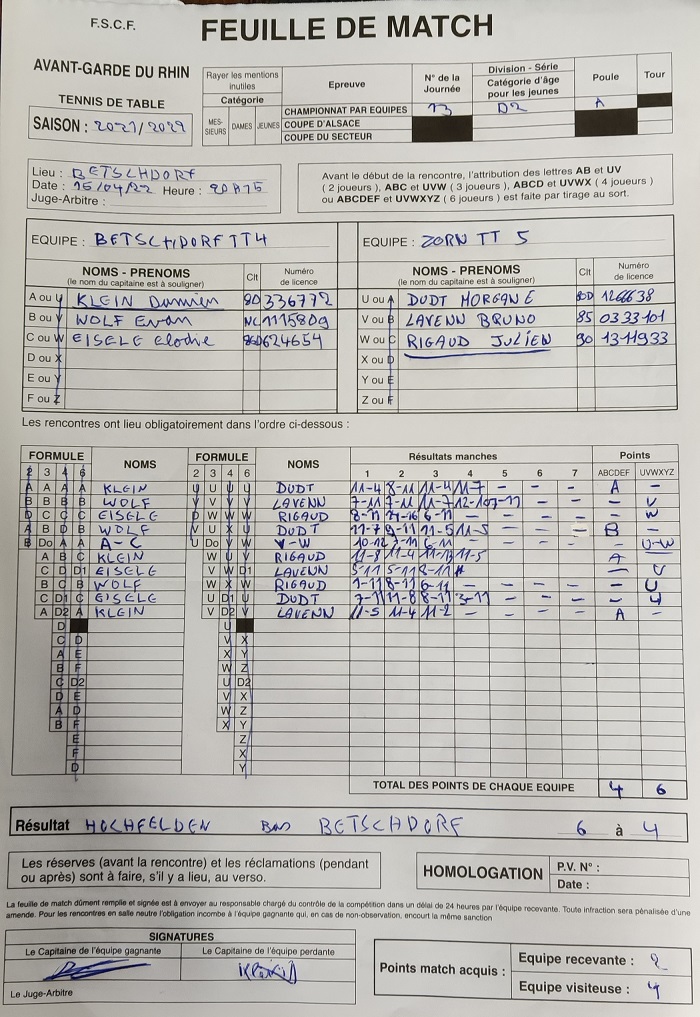 F.S.C.F.
FEUILLE DE MATCH
AVANT-GARDE DU RHIN
TENNIS DE TABLE
SAISON : 2021/2022
Rayer les mentions inutiles
Catégorie
MES-SIEURS DAMES JEUNES
Epreuve
CHAMPIONNAT PAR EQUIPES
COUPE D'ALSACE
COUPE DU SECTEUR
N° de la Journée
13
Division - Série
Catégorie d'âge pour les jeunes
D2
Poule
A
Tour
Lieu : BETSCHDORF
Date : 15/04/22 Heure : 20H15
Juge-Arbitre :
Avant le début de la rencontre, l'attribution des lettres AB et UV
( 2 joueurs ), ABC et UVW ( 3 joueurs ), ABCD et UVWX ( 4 joueurs )
ou ABCDEF et UVWXYZ ( 6 joueurs ) est faite par tirage au sort.
EQUIPE : BETSCHDORF TT4
NOMS - PRENOMS
(le nom du capitaine est à souligner)
Clt
Numéro de licence
A ou U KLEIN Damien 336772
B ou V WOLF Evan NC
C ou W EISELE Elodie 624654
D ou X
E ou Y
F ou Z
EQUIPE : ZORN TT 5
NOMS - PRENOMS
(le nom du capitaine est à souligner)
Clt
Numéro de licence
U ou A DUDT MORGANE
V ou B LAVENN BRUNO 85 0333101
W ou C RIGAUD JULIEN 90
X ou D
Y ou E
Z ou F
Les rencontres ont lieu obligatoirement dans l'ordre ci-dessous :
FORMULE NOMS FORMULE NOMS Résultats manches Points
2 3 4 6 2 3 4 6 1 2 3 4 5 6 7 ABCDEF UVWXYZ
A A A A KLEIN U U U U DUDT 11-4 8-11 11-4 11-7 - - - A -
B B B B WOLF V V V V LAVENN 7-11 11-7 - - V
C C C EISELE W W W RIGAUD 8-11 6-11 - - - - W
A B D B WOLF V U X U DUDT 11-7 9-11 11-5 11-5 - - - B -
B Do A A A-C U Do V W V-W 10-12 7-11 6-11 - - - - - U-W
A B C KLEIN W U V RIGAUD 11-8 11-4 11-13 11-5 A -
C D D1 EISELE V W D1 LAVENN 5-11 5-11 8-11 - - - - V
B C B WOLF W X W RIGAUD 1-11 8-11 6-11 - - - - - U
C D1 C EISELE U D1 U DUDT 7-11 11-8 8-11 3-11 - - - - U
A D2 A KLEIN V D2 V LAVENN 11-5 11-4 11-2 - - - - A -
D U
C D V X
A E X Y
B F W Z
C D2 U D2
D E V X
A D W Z
B F X Y
E Z
F X
D Y
TOTAL DES POINTS DE CHAQUE EQUIPE 4 6
Résultat HOCHFELDEN BETSCHDORF 6 à 4
Les réserves (avant la rencontre) et les réclamations (pendant
ou après) sont à faire, s'il y a lieu, au verso.
HOMOLOGATION
P.V. N° :
Date :
La feuille de match dûment remplie et signée est à envoyer au responsable chargé du contrôle de la compétition dans un délai de 24 heures par l'équipe recevante. Toute infraction sera pénalisée d'une
amende. Pour les rencontres en salle neutre l'obligation incombe à l'équipe gagnante qui, en cas de non-observation, encourt la même sanction
SIGNATURES
Le Capitaine de l'équipe gagnante
Le Capitaine de l'équipe perdante
Le Juge-Arbitre
Points match acquis :
Equipe recevante : 2
Equipe visiteuse : 4